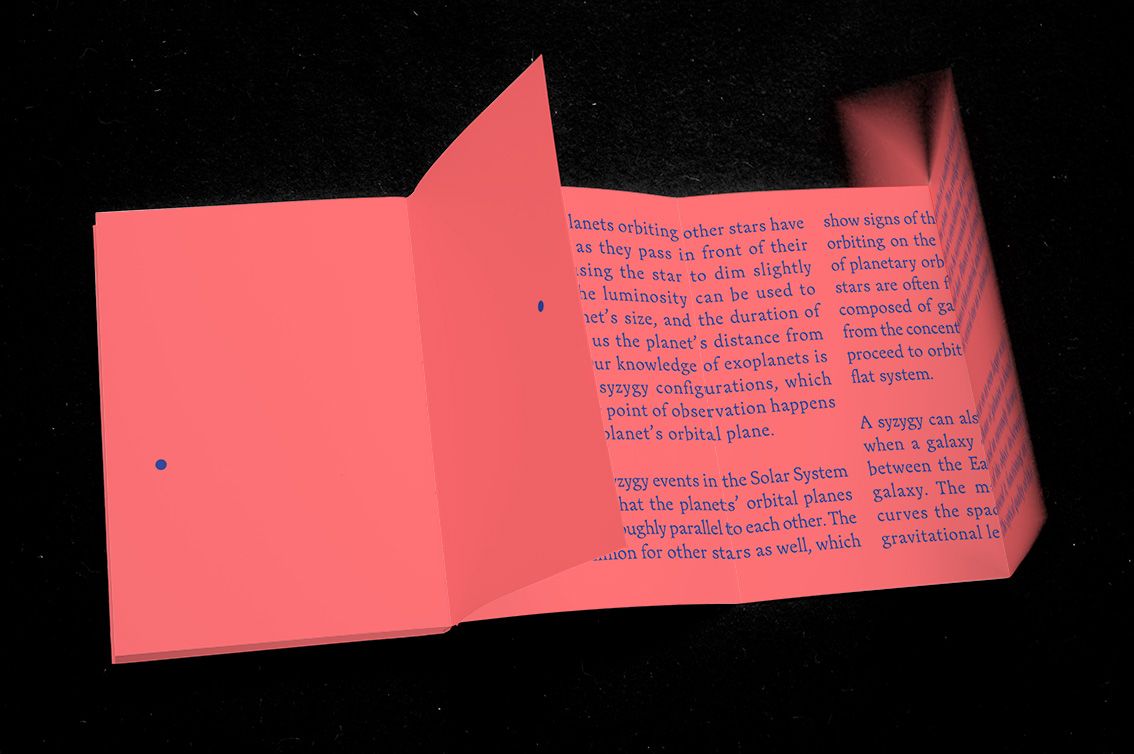 lanets orbiting other stars have
as they pass in front of their
sing the star to dim slightly
he luminosity can be used to
net's size, and the duration of
us the planet's distance from
ur knowledge of exoplanets is
syzygy configurations, which
point of observation happens
planet's orbital plane.
yzygy events in the Solar System
hat the planets' orbital planes
oughly parallel to each other. The
mon for other stars as well, which
show signs of th
orbiting on the
of planetary orb
stars are often f
composed of ga
from the concent
proceed to orbit
flat system.
A syzygy can als
when a galaxy
between the Ea
galaxy. The m
curves the spac
gravitational le